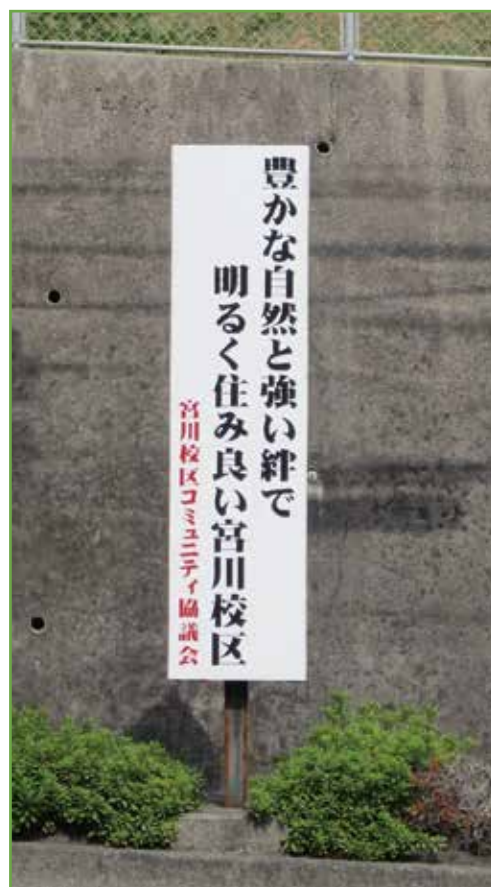 豊かな自然と強い絆で
明るく住み良い宮川校区
宮川校区コミュニティ協議会